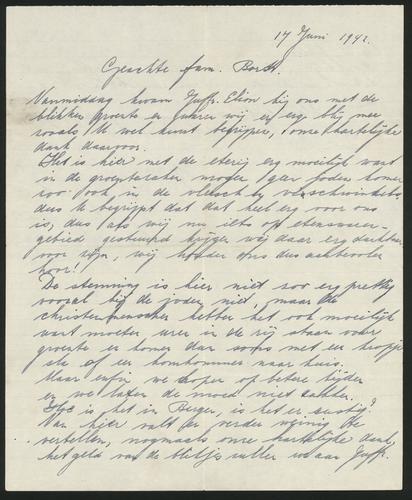 14 Juni 1942.
Geachte fam. Borst.
Vanmiddag kwam Juffr. Elion bij ons met de
blikken groente en waren wij er erg blij mee
zooals U wel kunt begrijpen, onze hartelijke
dank daarvoor.
Het is hier met de eterij erg moeilijk want
in de groentezaken mogen geen Joden komen
zoo ook in de vleesch en vischwinkels
dus U begrijpt dat dat heel erg voor ons
is, dus als wij nu iets op etenswaren-
gebied gestuurd krijgen wij daar erg dankbaar
voor zijn, wij houden ons dus aanbevolen
hoor!
De stemming is hier niet zoo erg prettig
vooral bij de Joden niet, maar de
christenmenschen hebben het ook moeilijk
want moeten uren in de rij staan voor
groente en komen dan soms met een kropje
sla of een komkommer naar huis.
Maar enfin we hopen op betere tijden
en we laten de moed niet zakken.
Hoe is het in Bergen, is het er rustig?
Van hier valt er verder weinig te
vertellen, nogmaals onze hartelijke dank,
het geld van de blikjes zullen we aan Juffr.